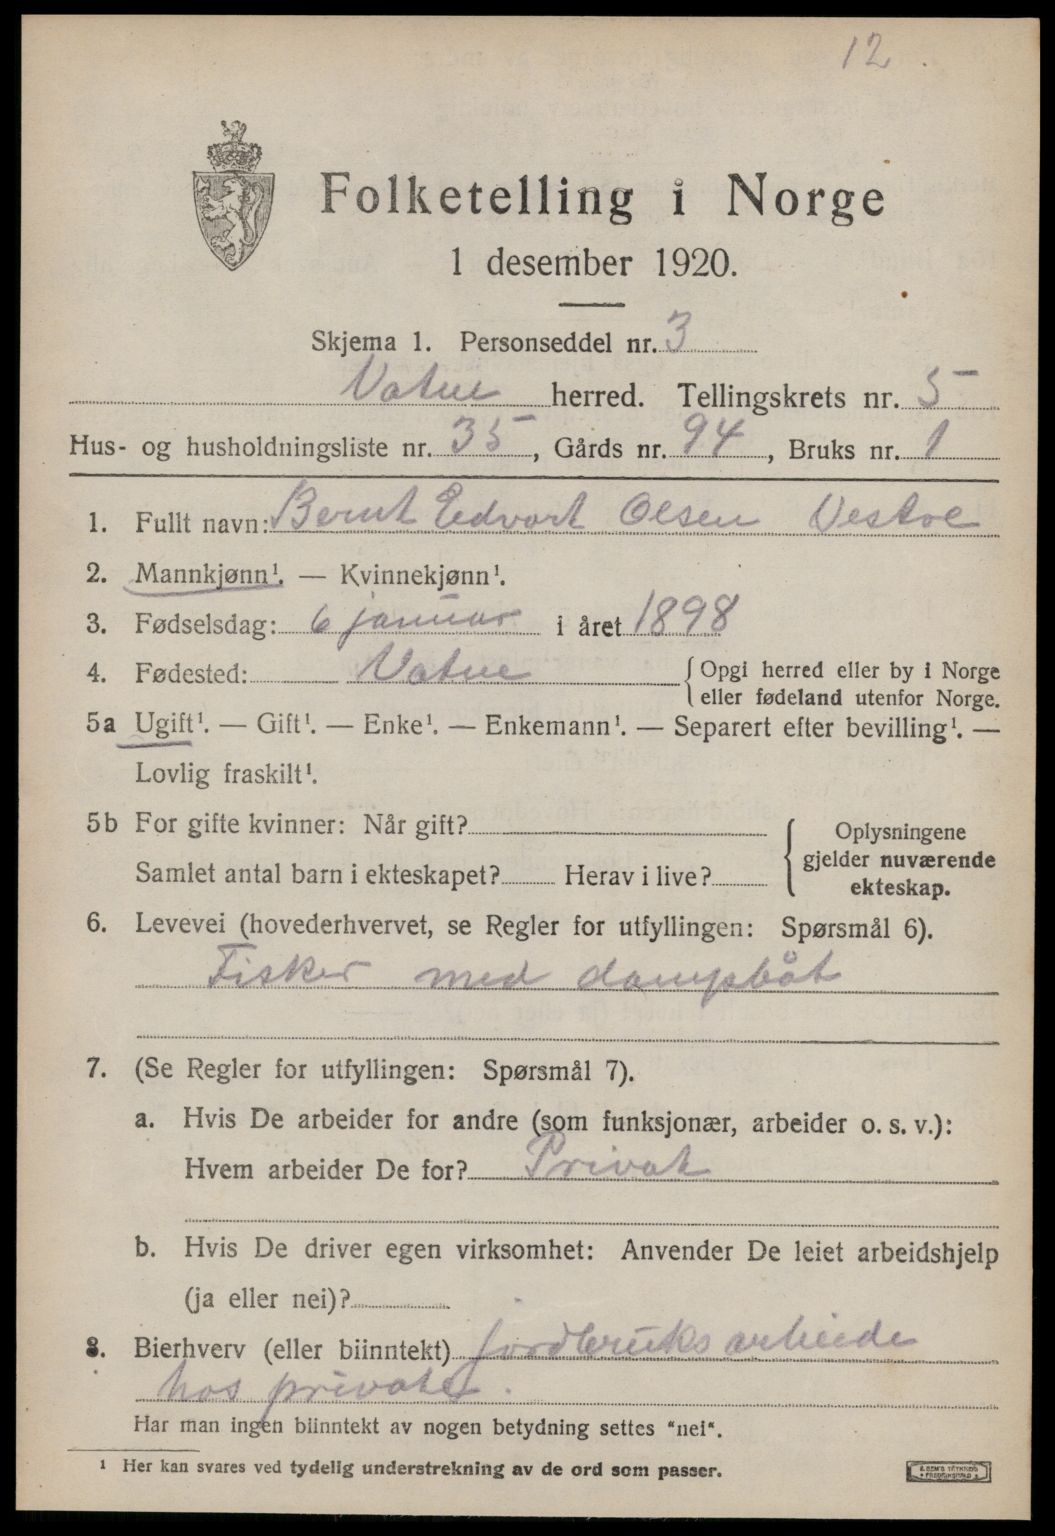 12.
Folketelling i Norge
1 desember 1920.
Skjema 1. Personseddel nr. 3
Vatne herred. Tellingskrets nr. 5
Hus- og husholdningsliste nr. 35, Gårds nr. 94, Bruks nr. 1
1. Fullt navn: Bernt Edvart Olsen Vestre
2. Mannkjønn¹. — Kvinnekjønn¹.
3. Fødselsdag: 6 januar i året 1898
4. Fødested: Vatne {Opgi herred eller by i Norge
eller fødeland utenfor Norge.
5a Ugift¹. — Gift¹. — Enke¹. — Enkemann¹. — Separert efter bevilling¹. —
Lovlig fraskilt¹.
5b For gifte kvinner: Når gift?
Samlet antal barn i ekteskapet? Herav i live?
{Oplysningene
gjelder nuværende
ekteskap.
6. Levevei (hovederhvervet, se Regler for utfyllingen: Spørsmål 6).
Fisker med dampbåt
7. (Se Regler for utfyllingen: Spørsmål 7).
a. Hvis De arbeider for andre (som funksjonær, arbeider o. s. v.):
Hvem arbeider De for? Privat
b. Hvis De driver egen virksomhet: Anvender De leiet arbeidshjelp
(ja eller nei)?
8. Bierhverv (eller biinntekt) jordbruksarbeide
hos private.
Har man ingen biinntekt av nogen betydning settes "nei".
¹ Her kan svares ved tydelig understrekning av de ord som passer.